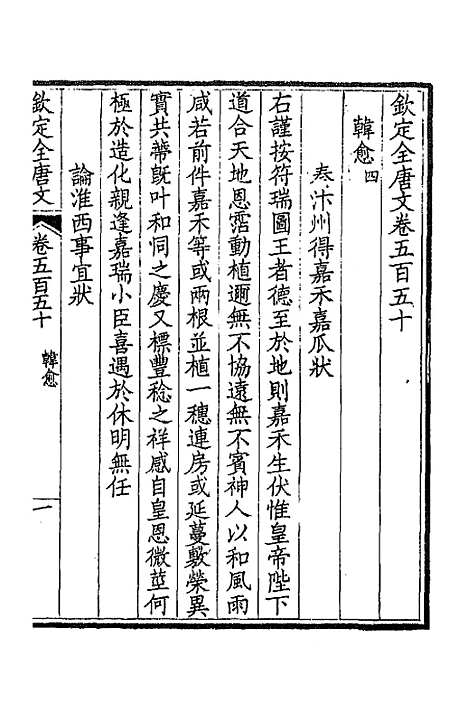 欽定全唐文卷五百五十
韓愈 四
奏汴州得嘉禾嘉瓜狀
右謹按符瑞圖王者德至於地則嘉禾生伏惟皇帝陛下
道合天地恩霑動植邇無不協遠無不賓神人以和風雨
咸若前件嘉禾等或兩根並植一穗連房或延蔓敷榮異
實共蔕旣叶和同之慶又標豐稔之祥感自皇恩微莖何
極於造化親逢嘉瑞小臣喜遇於休明無任
論淮西事宜狀
欽定全唐文 卷五百五十 韓愈 一